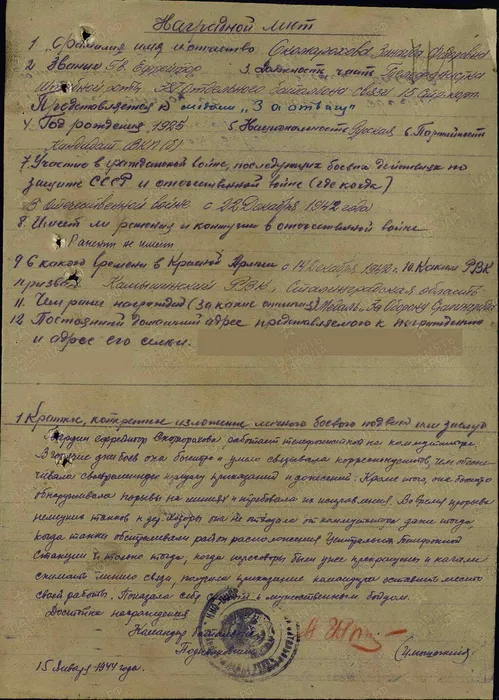 Наградной лист
1 Фамилия имя и отчество Скоморохова Зинаида Федоровна
2. Звание Гв. Ефрейтор 3. Должность, часть Телефонистка
Штабной роты отдельного батальона связи 15 Стр. корп.
Представляется к медали "За отвагу"
4. Год рождения 1925 5. Национальность Русская 6. Партийность
Кандидат ВКП(б)
7. Участие в гражданской войне, последующих боевых действиях по
защите СССР и отечественной войне (где когда)
В отечественной войне с 22 Декабря 1942 года
8. Имеет ли ранения и контузии в отечественной войне.
Ранений не имеет
9. С какого времени в Красной Армии с 14 Декабря 1942 г. 10. Каким РВК
призван РВК, Сталинградская область
11. Чем ранее награжден (за какие отличия) Медаль "За Оборону Сталинграда"
12. Постоянный домашний адрес представляемого к награждению
и адрес его семьи.
1 Краткое, конкретное изложение личного боевого подвига или заслуг
Гвардии ефрейтор Скоморохова, работает телефонисткой на коммутаторе.
В горячие дни боев она быстро и умело связывала корреспондентов, чем обеспе-
чивала своевременную передачу приказаний и донесений. Кроме того, она быстро
обнаруживала порывы на линиях и требовала их исправления. Во время прорыва
немецких танков к дер. она не отходила от коммутатора даже тогда,
когда танки обстреливали район расположения Центральной Телефонной
Станции и только тогда, когда переговоры были уже прекращены и начали
снимать линию связи, получив приказание командира оставила место
своей работы. Показала себя и мужественным бойцом.
Достойна награждения
Командир Батальона
Подполковник
15 Января 1944 года.